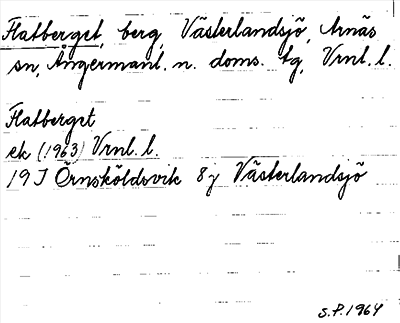 Flatberget, berg, Västerlandsjö, Arnäs
sn, Ångermanl. n. doms. tg, Vrnl. l.
Flatberget
ek (1963) Vrnl. l.
19 J Örnsköldsvik 8j Västerlandsjö
S.P. 1964